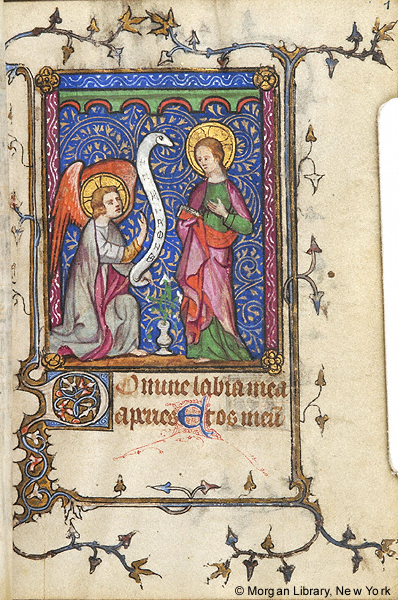 Domine labia mea
aperies Et os meū
© Morgan Library, New York